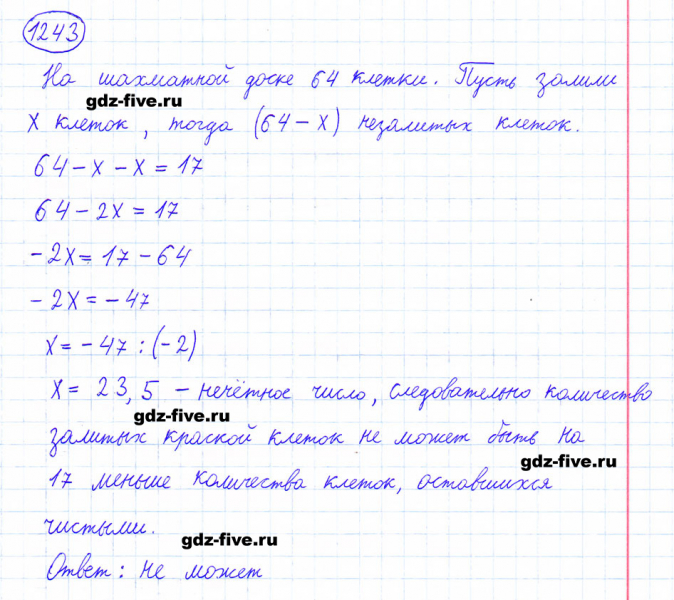 1243
На шахматной доске 64 клетки. Пусть залили
gdz-five.ru
х клеток, тогда (64 - х) незалитых клеток.
64 - х - х = 17
64 - 2х = 17
- 2х = 17 - 64
- 2х = - 47
х = - 47 : (-2)
х = 23,5 - нечётное число, следовательно количество
gdz-five.ru
залитых краской клеток не может быть на
gdz-five.ru
17 меньше количества клеток, оставшихся
чистыми.
gdz-five.ru
Ответ: не может